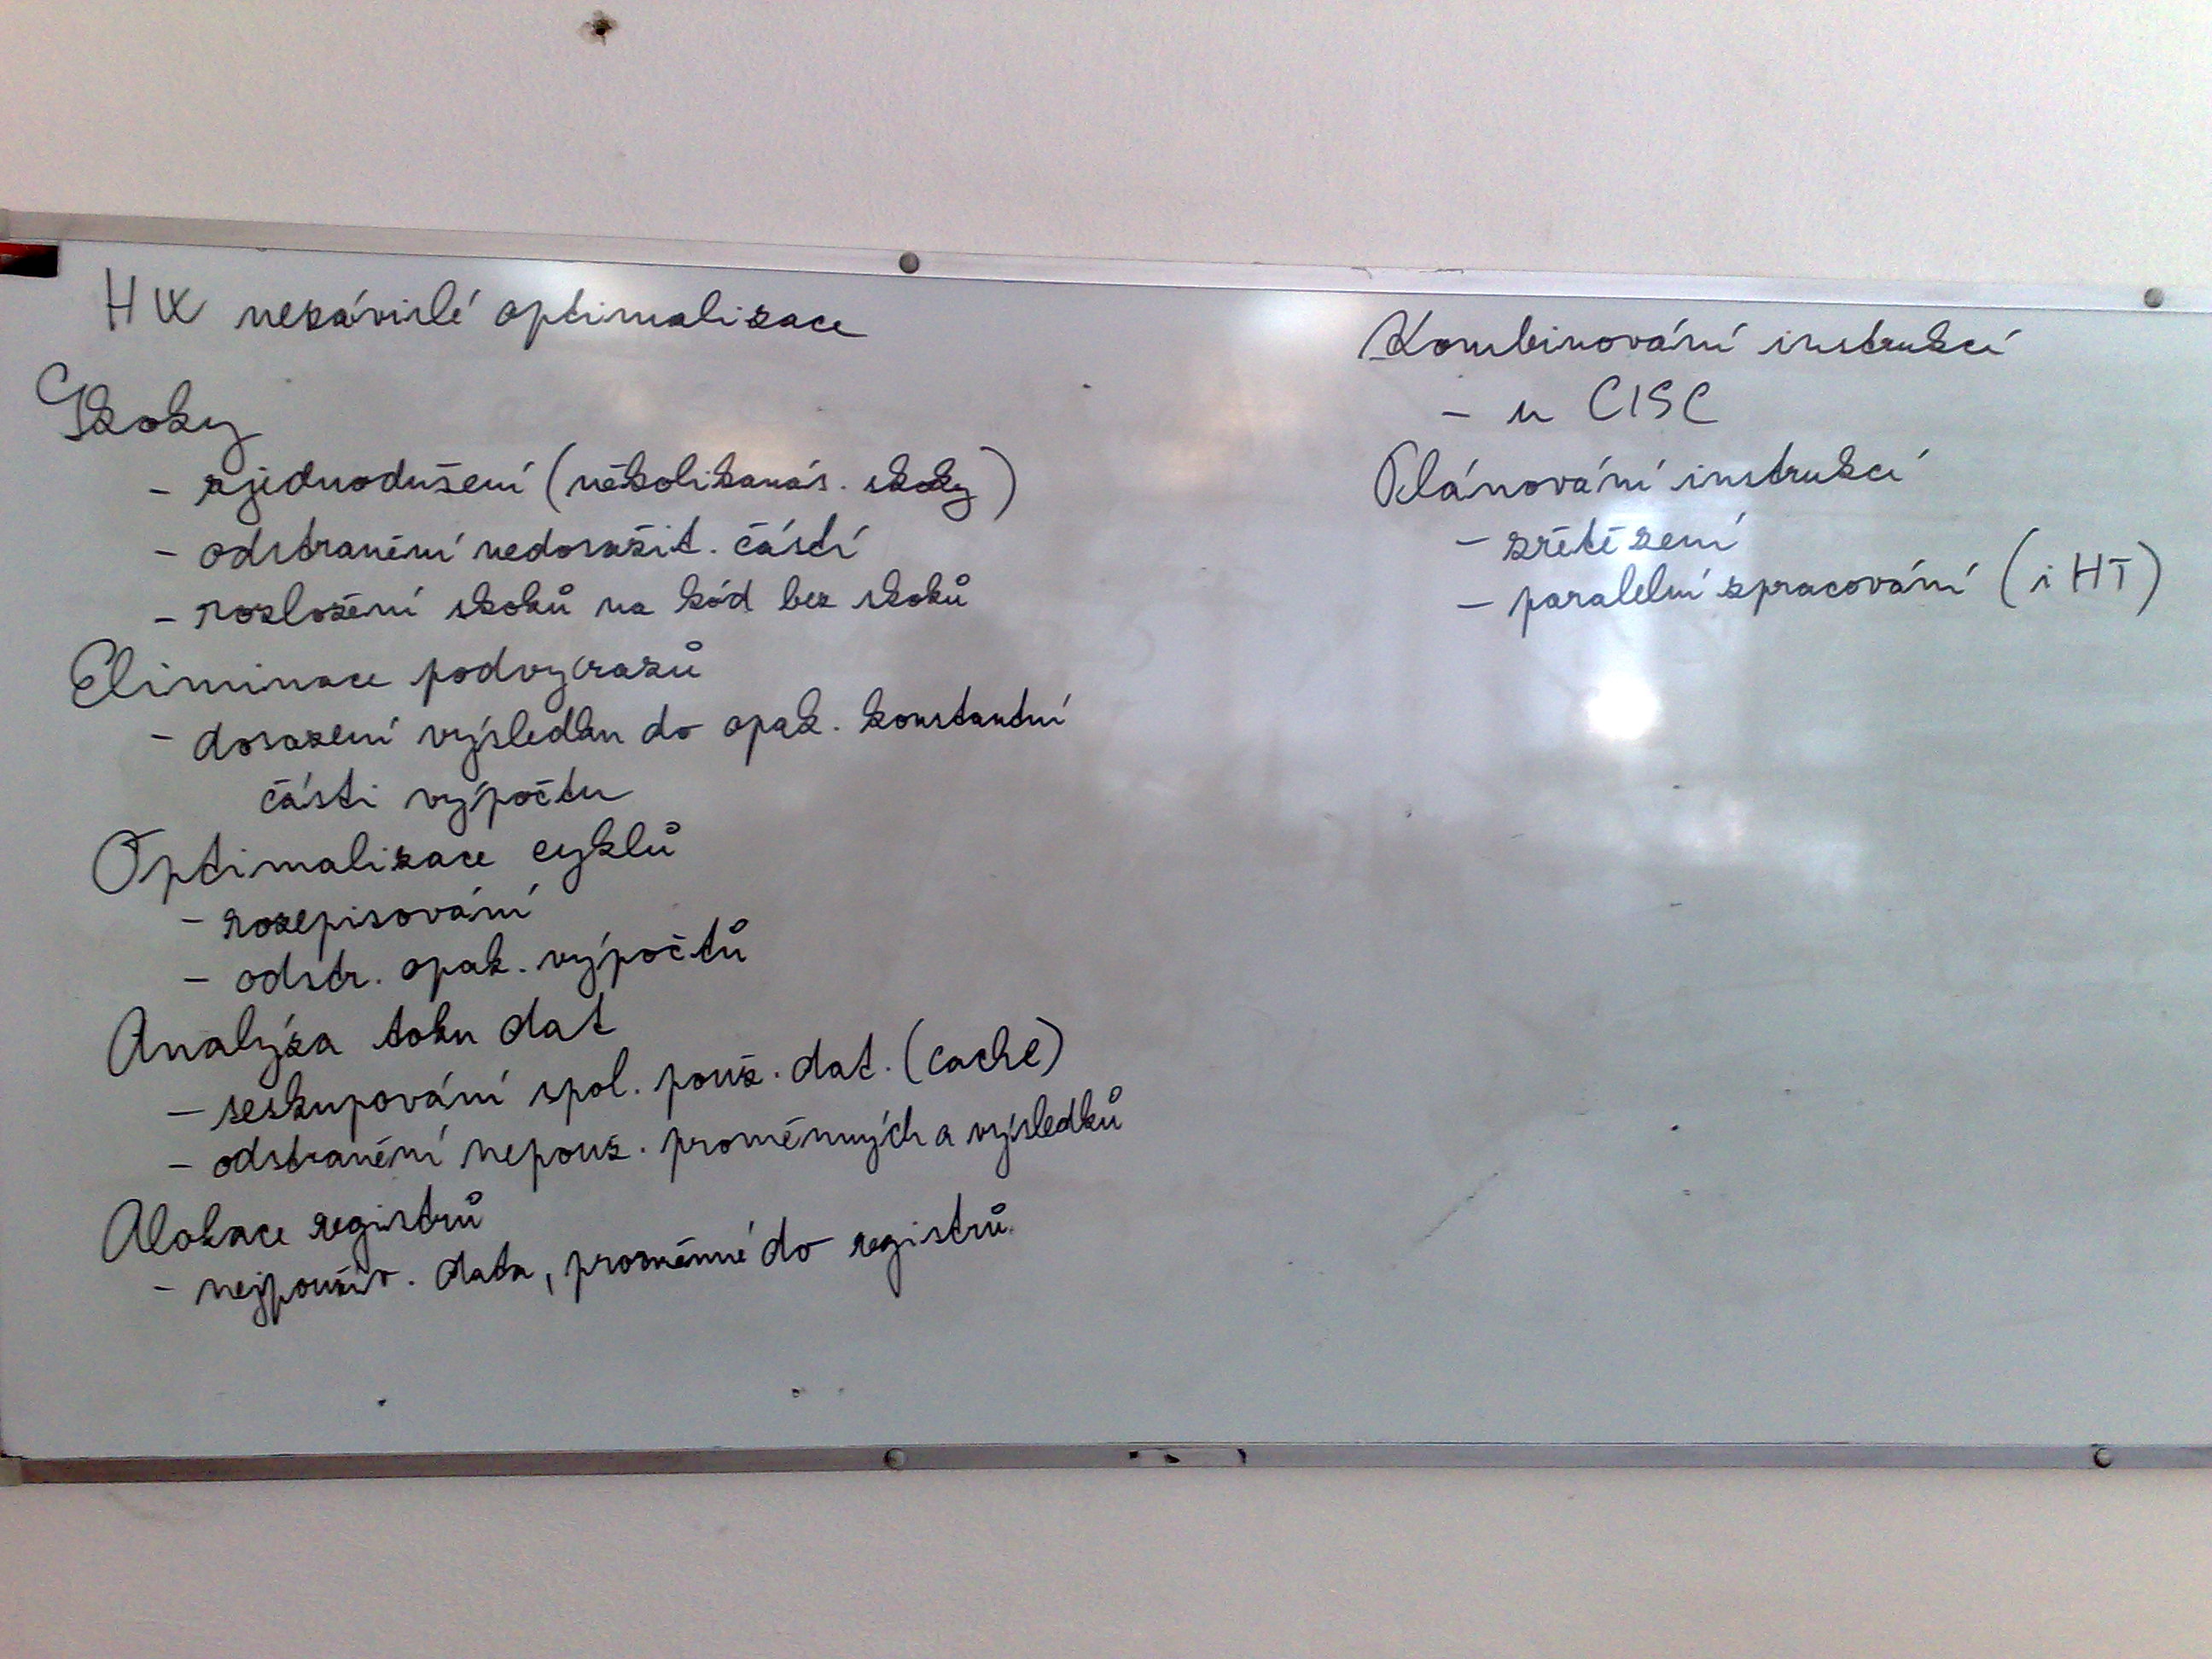 HW nezávislé optimalizace
Skoky
- zjednodušení (několikanás. skoky)
- odstranění nedosažit. částí
- rozložení skoků na kód bez skoků
Eliminace podvýrazů
- dosazení výsledku do opak. konstantní
části výpočtu
Optimalizace cyklů
- rozepisování
- odstr. opak. výpočtů
Analýza toku dat
- seskupování spol. použ. dat. (cache)
- odstranění nepouž. proměnných a výsledků
Alokace registrů
- nejpoužív. data, proměnné do registrů
Kombinování instrukcí
- u CISC
Plánování instrukcí
- zřetězení
- paralelní zpracování (i HT)